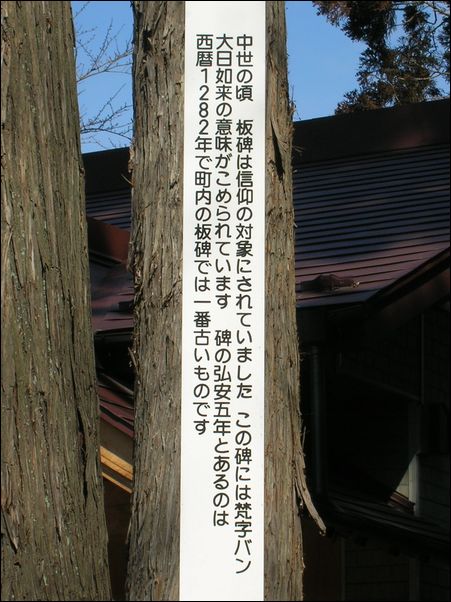 中世の頃　板碑は信仰の対象にされていました　この碑には梵字バン
大日如来の意味がこめられています　碑の弘安五年とあるのは
西暦1282年で町内の板碑では一番古いものです